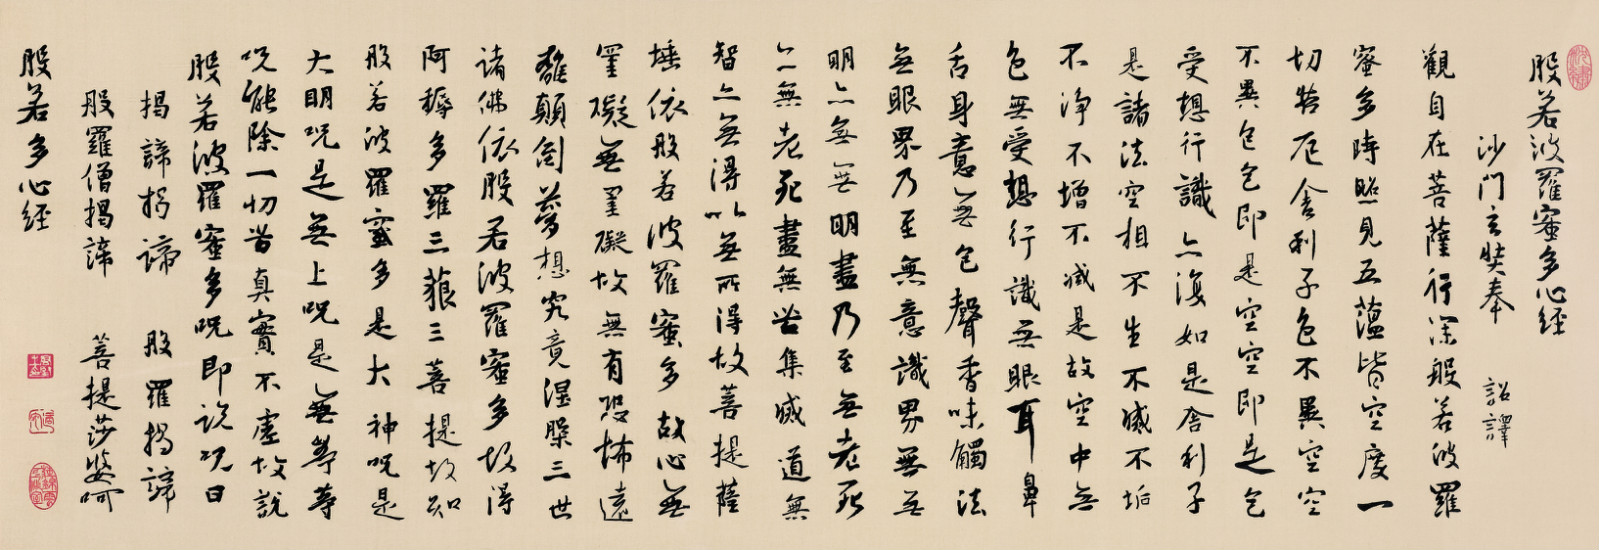 般若波羅蜜多心經
沙門玄奘奉 詔譯
觀自在菩薩行深般若波羅
蜜多時照見五蘊皆空度一
切苦厄舍利子色不異空空
不異色色即是空空即是色
受想行識亦復如是舍利子
是諸法空相不生不滅不垢
不淨不增不減是故空中無
色無受想行識無眼耳鼻
舌身意無色聲香味觸法
無眼界乃至無意識界無無
明亦無無明盡乃至無老死
亦無老死盡無苦集滅道無
智亦無得以無所得故菩提薩
埵依般若波羅蜜多故心無
罣礙無罣礙故無有恐怖遠
離顛倒夢想究竟涅槃三世
諸佛依般若波羅蜜多故得
阿耨多羅三藐三菩提故知
般若波羅蜜多是大神呪是
大明呪是無上呪是無等等
呪能除一切苦真實不虛故說
般若波羅蜜多呪即說呪曰
揭諦揭諦 般羅揭諦
般羅僧揭諦 菩提莎婆呵
般若多心經